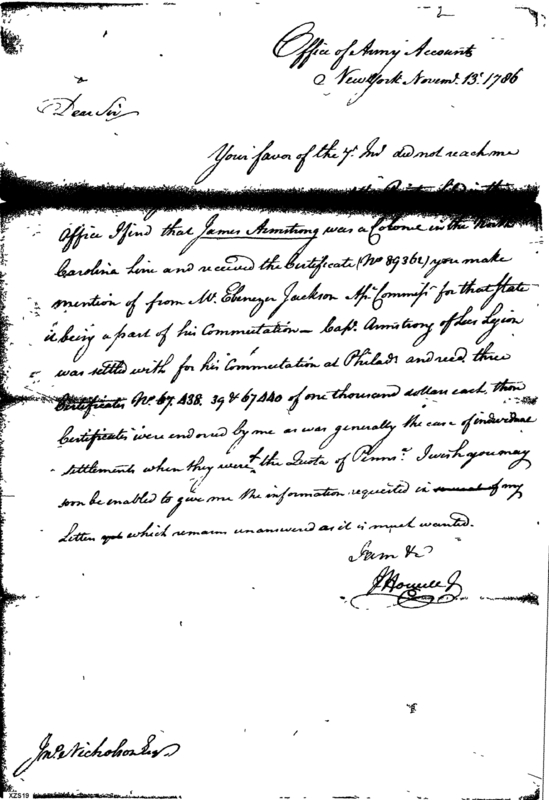 2
Office of Army Accounts
New York Novemr. 13th 1786
Dear Sir
Your favor of the 7th Inst did not reach me
Office I find that James Armstrong was a Colonel in the North
Carolina Line and received the Certificate (No 89362) you make
mention of from Mr. Ebenezer Jackson Asst. Commissr. for that State
it being a part of his Commutation — Capt. Armstrong of Lees Legion
was settled with for his Commutation at Philada and recd. three
Certificates No. 67.438. 39 & 67440 of one thousand dollars each, these
Certificates were endorsed by me as was generally the case of individual
settlements when they were the Quota of Pennsa. I wish you may
soon be enabled to give me the information requested in several of my
Letters which remains unanswered as it is much wanted.
I am &c
J Howell Jr
Jno. Nicholson Esqr
XZS19